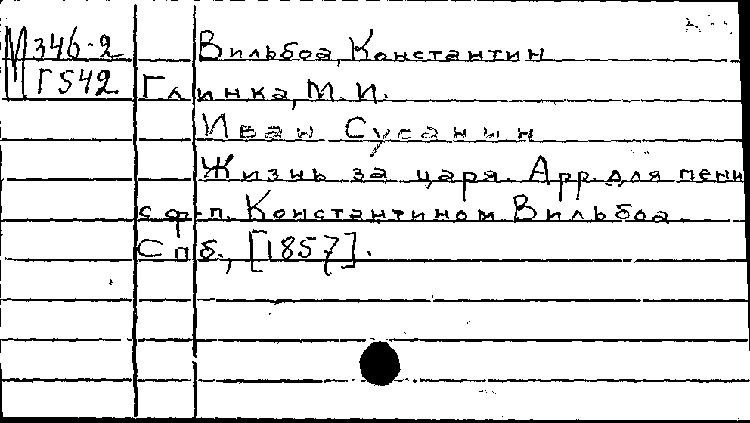 М 346-2 Вильбоа, Константин
Г 542 Глинка, М. И.
Иван Сусанин
Жизнь за царя. Арр. для пени
с ф-п. Константином Вильбоа
Спб., [1857].